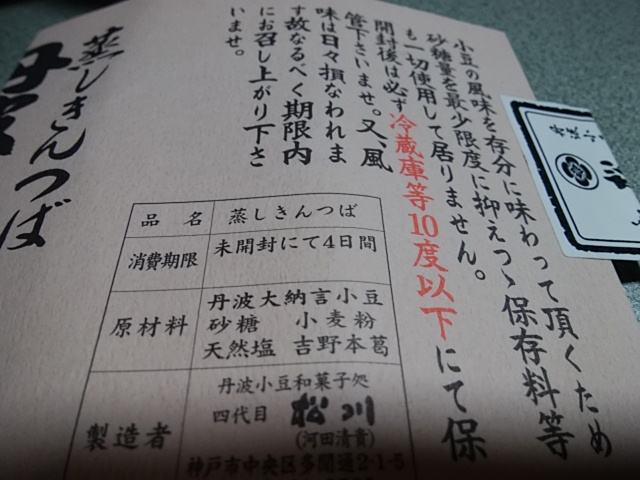 小豆の風味を存分に味わって頂くため
砂糖量を最少限度に抑えつゝ保存料等
も一切使用して居りません。
開封後は必ず冷蔵庫等10度以下にて保
管下さいませ。又、風
味は日々損なわれま
す故なるべく期限内
にお召し上がり下さ
いませ。
蒸しきんつば
丹波
品名 蒸しきんつば
消費期限 未開封にて4日間
原材料 丹波大納言小豆
砂糖 小麦粉
天然塩 吉野本葛
製造者 丹波小豆和菓子処
四代目 松川
(河田清貴)
神戸市中央区多聞通2-1-5